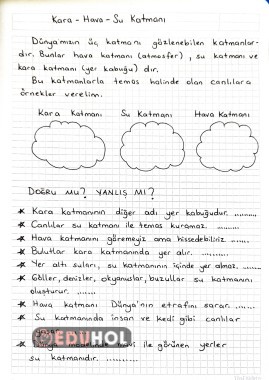 Kara - Hava - Su Katmanı
Dünyamızın üç katmanı gözlenebilen katmanlar-
dır. Bunlar hava katmanı (atmosfer), su katmanı ve
kara katmanı (yer kabuğu) dır.
Bu katmanlarla temas halinde olan canlılara
örnekler verelim.
Kara Katmanı Su Katmanı Hava Katmanı
DOĞRU MU? YANLIŞ MI?
* Kara katmanının diğer adı yer kabuğudur. ........
* Canlılar su katmanı ile temas kuramaz. ........
* Hava katmanını göremeyiz ama hissedebiliriz. ........
* Bulutlar kara katmanında yer alır. ........
* Yer altı suları, su katmanının içinde yer almaz. ........
* Göller, denizler, okyanuslar, buzullar su katmanını
oluşturur. ........
* Hava katmanı Dünya'nın etrafını sarar. ........
* Su katmanında insan ve kedi gibi canlılar
EDUHOL
modelinde mavi ile görünen yerler
su katmanıdır. ........